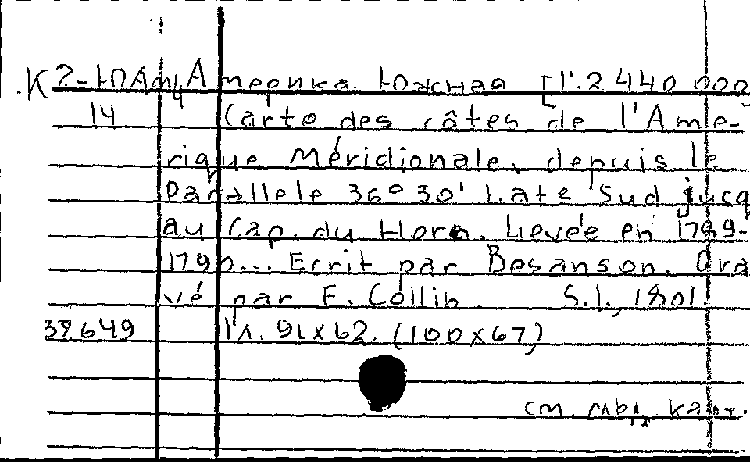 К 2-ЮАм/4 Америка Южная [1:2 440 000
14 Carte des côtes de l'Amé-
rique Méridionale, depuis le
Parallele 36° 30' Late Sud jusq
au Cap. du Horn. Levée en 1789-
1790... Ecrit par Besanson. Gra
vé par E. Collin. S.l., 1801.
38649 1 л. 91х62. (100х67)
см. карт.